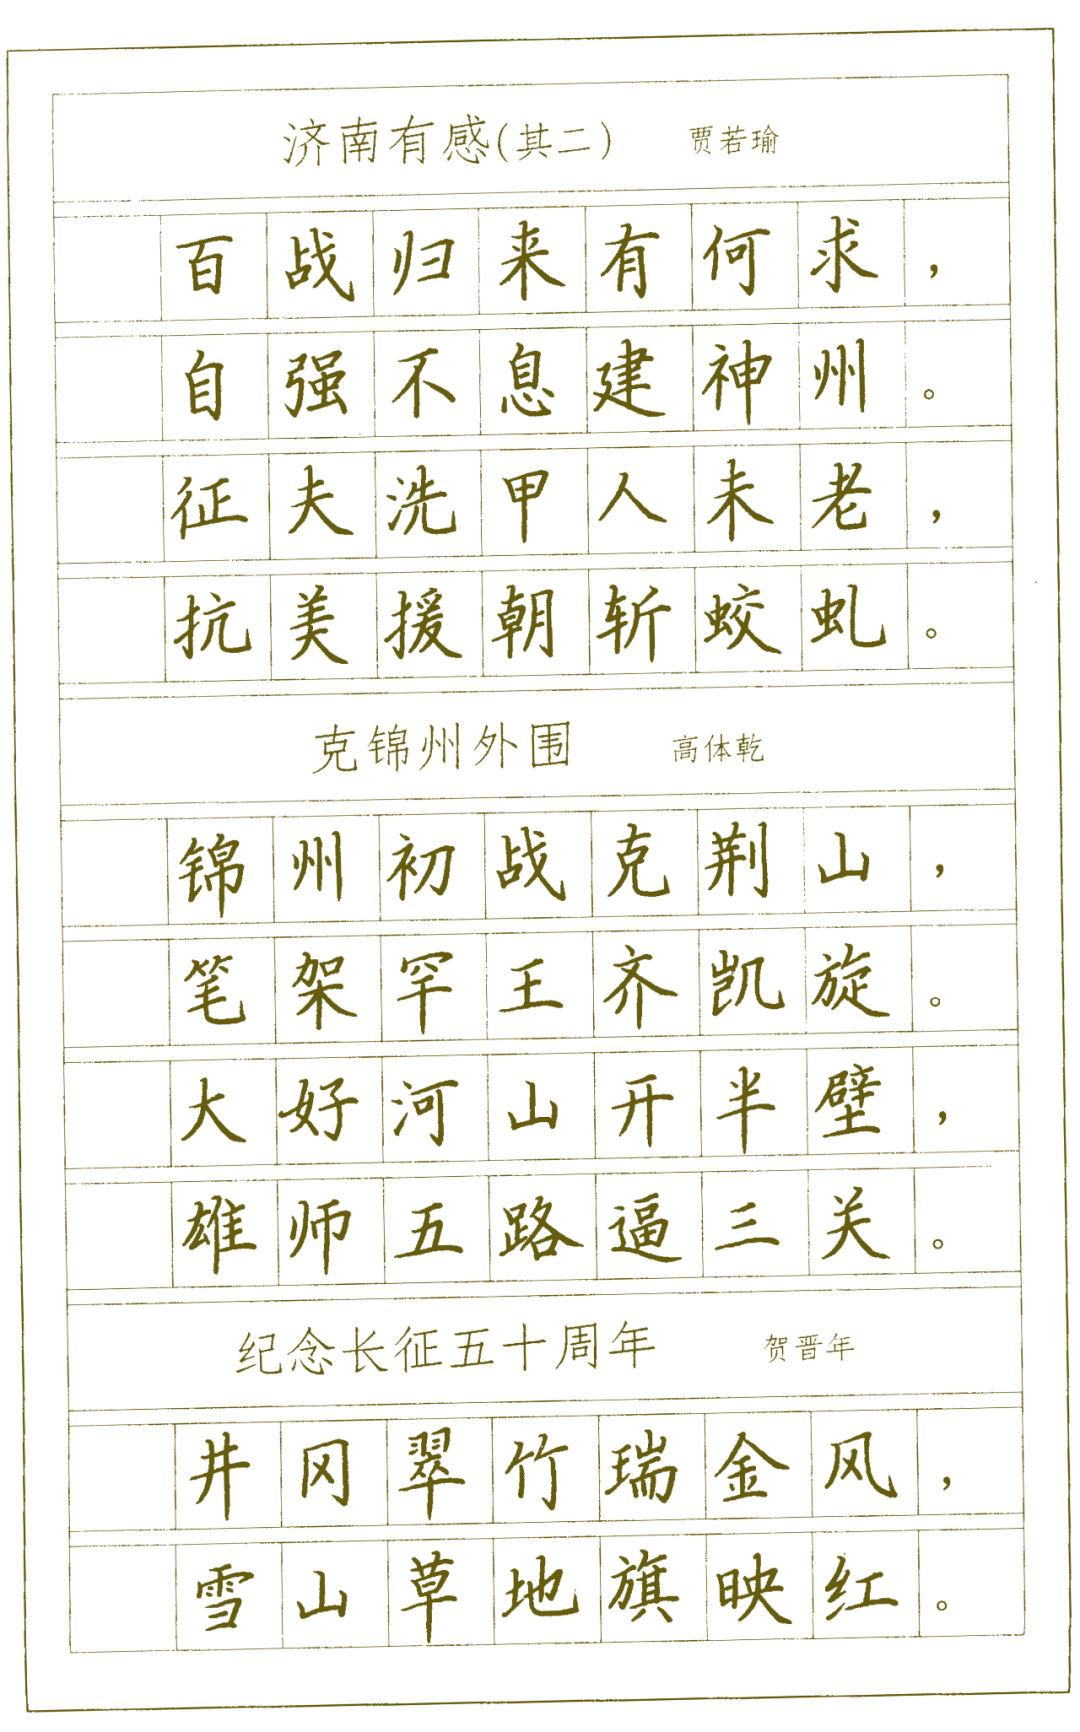 济南有感(其二) 贾若瑜
百战归来有何求，
自强不息建神州。
征夫洗甲人未老，
抗美援朝斩蛟虬。
克锦州外围 高体乾
锦州初战克荆山，
笔架罕王齐凯旋。
大好河山开半壁，
雄师五路逼三关。
纪念长征五十周年 贺晋年
井冈翠竹瑞金风，
雪山草地旗映红。